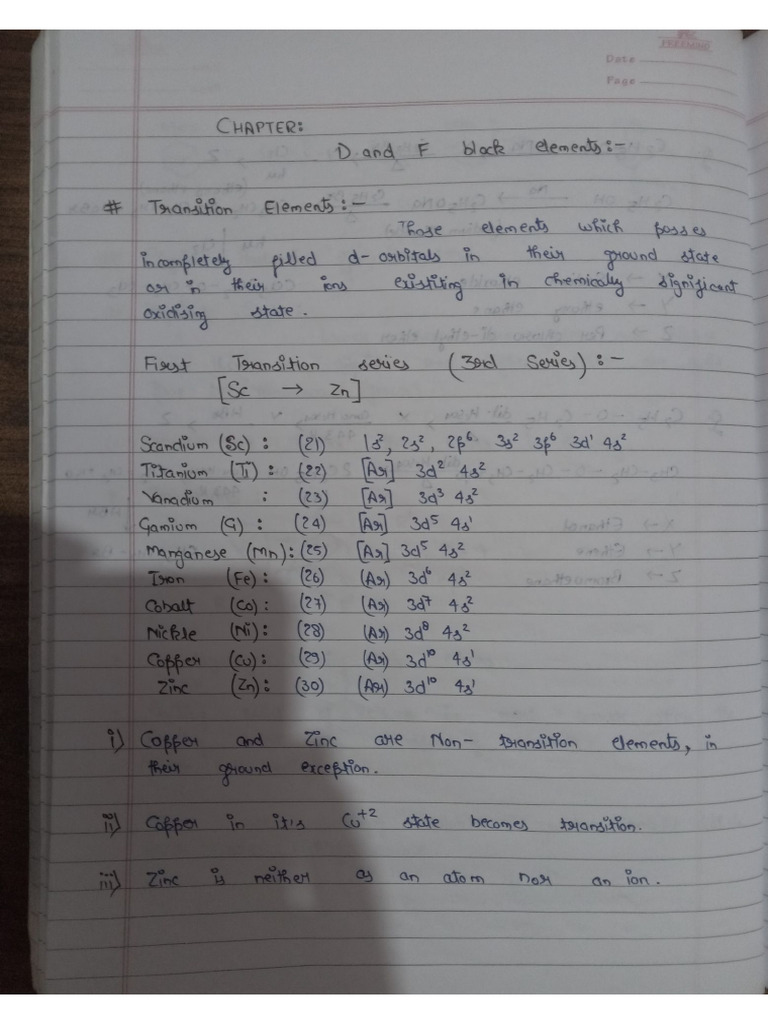 Date
Page
CHAPTER:
D and F block elements:-
# Transition Elements:-
Those elements which posses
incompletely filled d-orbitals in their ground state
or in their ions existiting in chemically significant
oxidising state.
First Transition series (3rd Series):-
[Sc → Zn]
Scandium (Sc) : (21) 1s², 2s², 2p⁶ 3s² 3p⁶ 3d¹ 4s²
Titanium (Ti) : (22) [Ar] 3d² 4s²
Vanadium : (23) [Ar] 3d³ 4s²
(24) [Ar] 3d⁵ 4s¹
Manganese (Mn): (25) [Ar] 3d⁵ 4s²
Iron (Fe): (26) (Ar) 3d⁶ 4s²
Cobalt (Co): (27) (Ar) 3d⁷ 4s²
Nickle (Ni): (28) (Ar) 3d⁸ 4s²
Copper (Cu): (29) (Ar) 3d¹⁰ 4s¹
Zinc (Zn): (30) (Ar) 3d¹⁰ 4s¹
i) Copper and Zinc are Non- transition elements, in
their ground exception.
ii) Copper in it's Cu⁺² state becomes transition.
iii) Zinc is neither as an atom nor an ion.